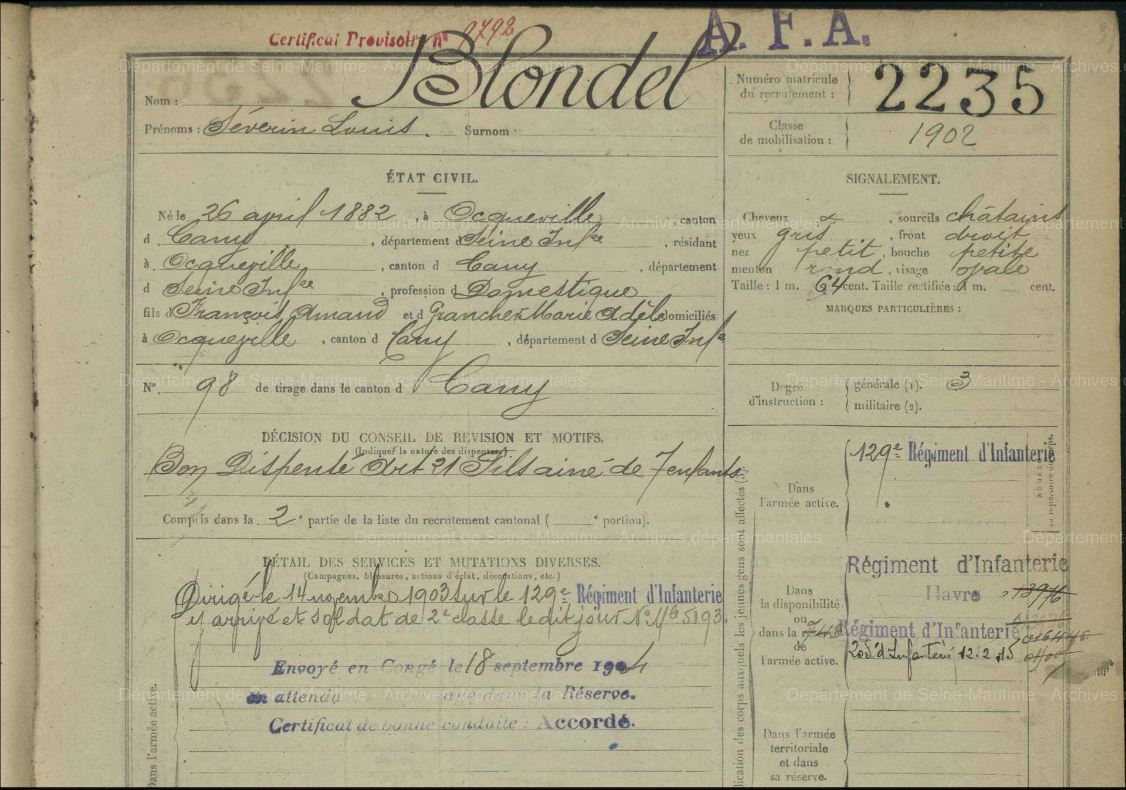 Certificat Provisoire n° 2792
A. F. A.
Nom : Blondel
Prénoms : Séverin Louis. Surnom :
Numéro matricule
du recrutement : 2235
Classe
de mobilisation : 1902
ÉTAT CIVIL.
Né le 26 avril 1882, à Ocqueville, canton
d Cany, département d Seine Infre, résidant
à Ocqueville, canton d Cany, département
d Seine Infre, profession d Domestique
fils d François Amand et d Grancher Marie Adèle domiciliés
à Ocqueville, canton d Cany, département d Seine Infre
N° 98 de tirage dans le canton d Cany
SIGNALEMENT.
Cheveux et, sourcils châtains
yeux gris, front droit
nez petit, bouche petite
menton rond, visage ovale
Taille : 1 m. 64 cent. Taille rectifiée : 1 m. cent.
MARQUES PARTICULIÈRES :
Degré
d'instruction :
générale (1). 3
militaire (2).
DÉCISION DU CONSEIL DE REVISION ET MOTIFS.
(Indiquer la nature des dispenses.)
Bon Dispensé art 21 Fils ainé de 7 enfants
Compris dans la 2e partie de la liste du recrutement cantonal ( e portion).
DÉTAIL DES SERVICES ET MUTATIONS DIVERSES.
(Campagnes, blessures, actions d'éclat, décorations, etc.)
Dirigé le 14 novembre 1903 sur le 129e Régiment d'Infanterie
y arrivé et soldat de 2e classe le dit jour N° Mle 5193.
Envoyé en Congé le 18 septembre 1904
en attendant passage dans la Réserve.
Certificat de bonne conduite : Accordé.
Dans l'armée active.
Dans
l'armée active.
129e Régiment d'Infanterie
Dans
la disponibilité
ou
dans la
de
l'armée active.
Régiment d'Infanterie
Havre
Régiment d'Infanterie
205e d'Infanterie 12.2.15
Dans l'armée
territoriale
et dans
sa réserve.
Département de Seine-Maritime - Archives départementales